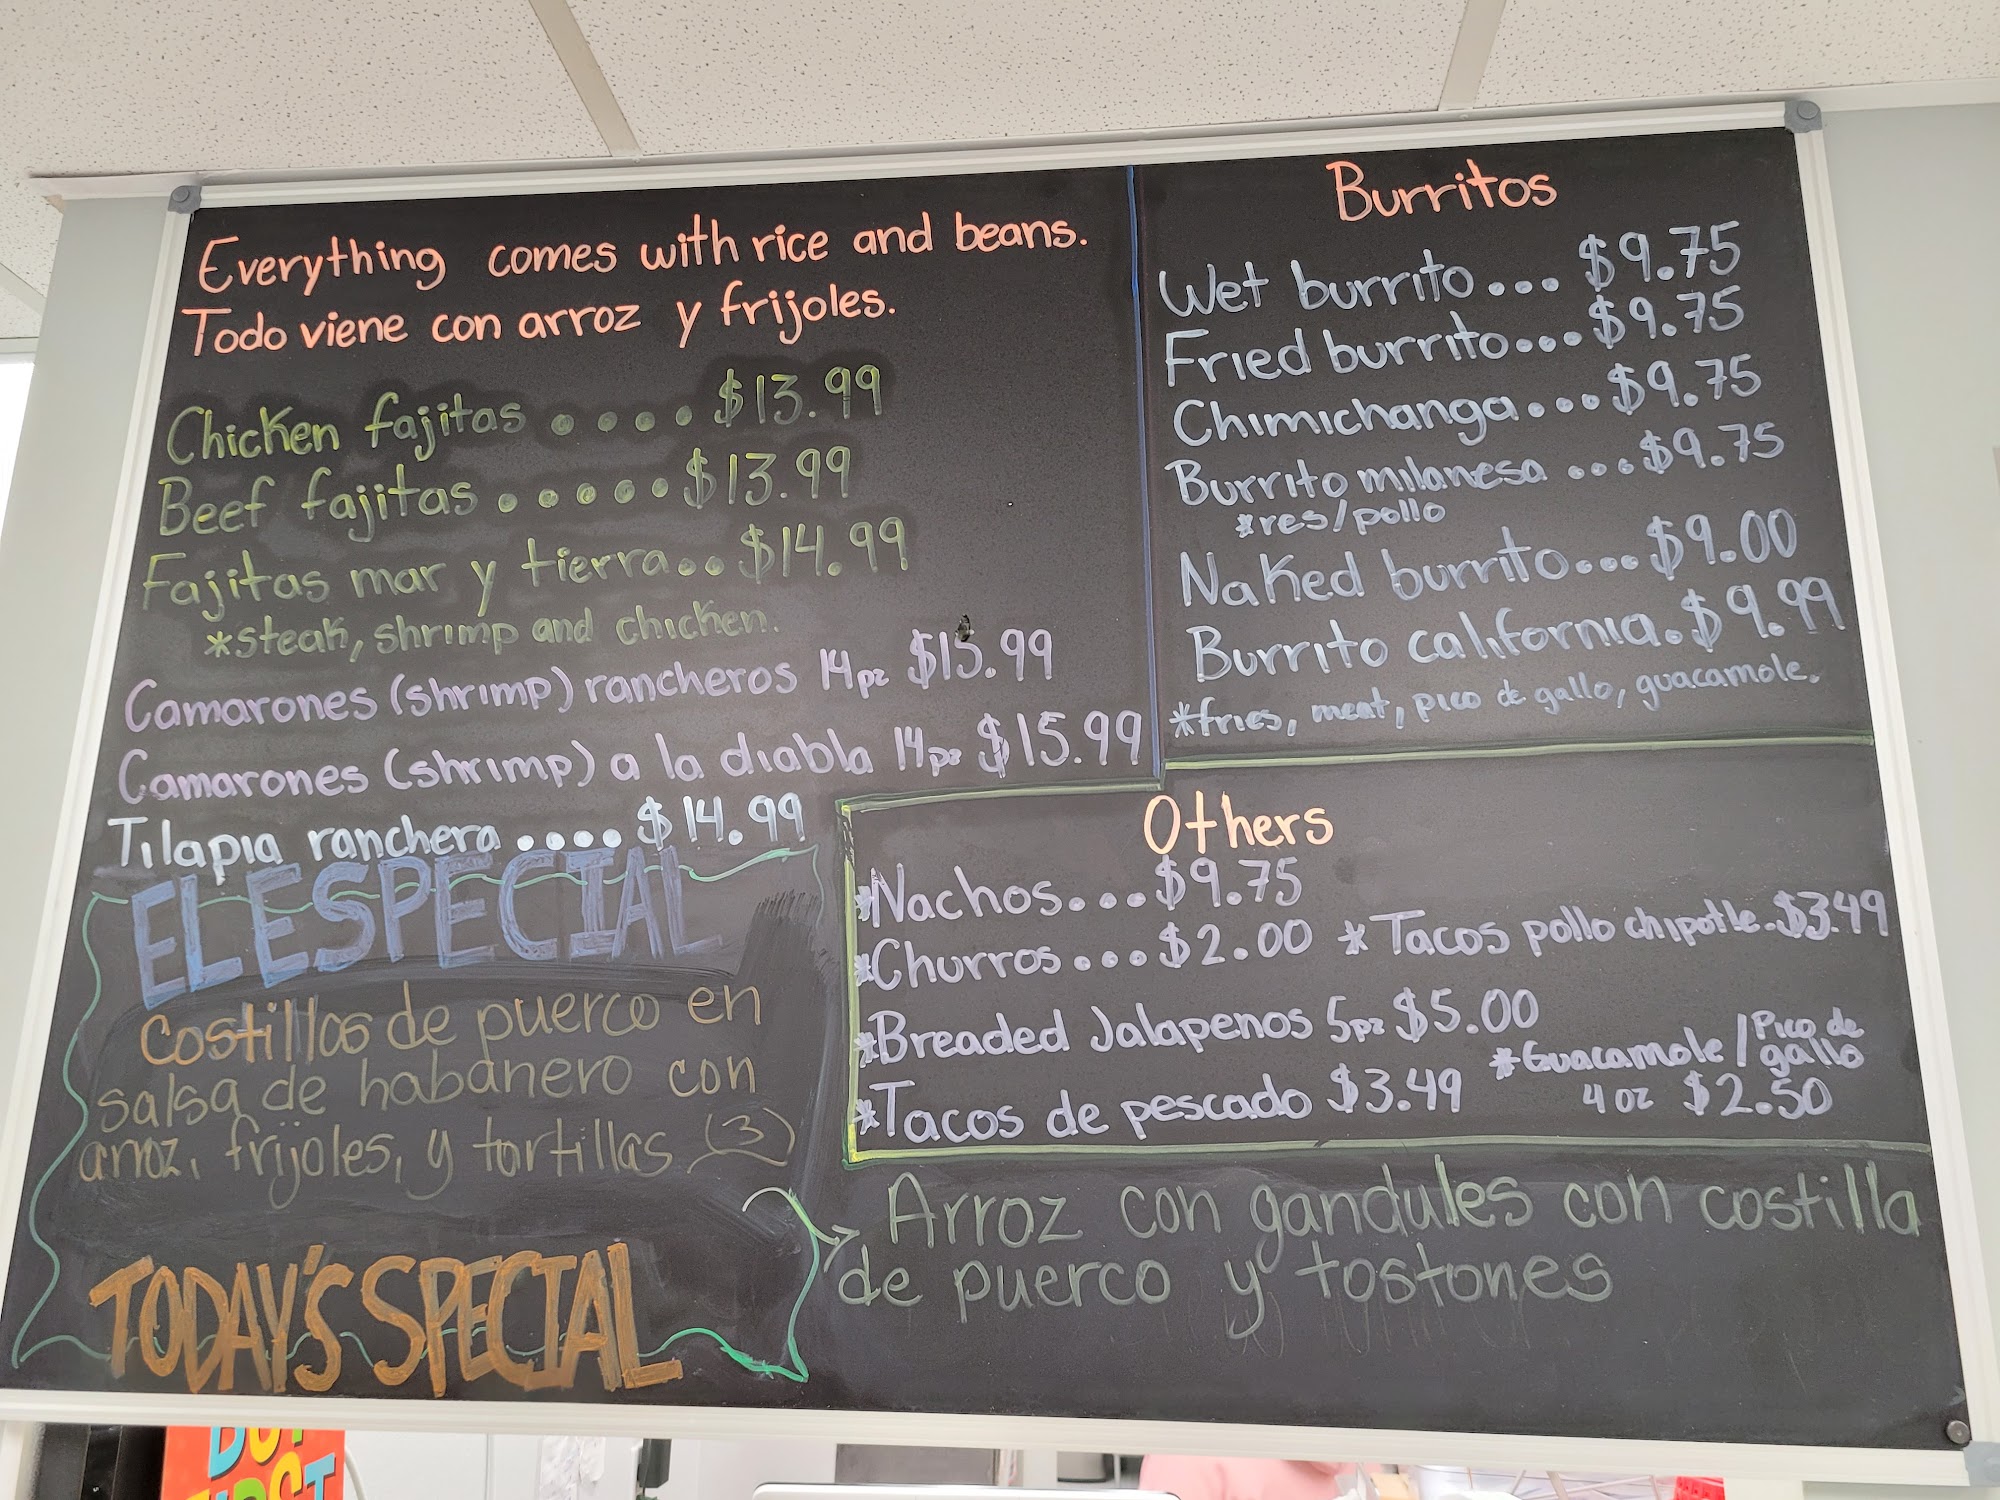 Everything comes with rice and beans.
Todo viene con arroz y frijoles.
Chicken fajitas .... $13.99
Beef fajitas ..... $13.99
Fajitas mar y tierra.. $14.99
*steak, shrimp and chicken.
Camarones (shrimp) rancheros 14pz $15.99
Camarones (shrimp) a la diabla 14pz $15.99
Tilapia ranchera .... $14.99
EL ESPECIAL
Costillas de puerco en
salsa de habanero con
arroz, frijoles, y tortillas (3)
TODAY'S SPECIAL
Burritos
Wet burrito... $9.75
Fried burrito... $9.75
Chimichanga... $9.75
Burrito milanesa ... $9.75
*res/pollo
Naked burrito... $9.00
Burrito california. $9.99
*fries, meat, pico de gallo, guacamole.
Others
*Nachos... $9.75
*Churros... $2.00
*Tacos pollo chipotle. $3.49
*Breaded Jalapenos 5pz $5.00
*Tacos de pescado $3.49
*Guacamole / Pico de gallo
4 oz $2.50
Arroz con gandules con costilla
de puerco y tostones
BUY
FIRST